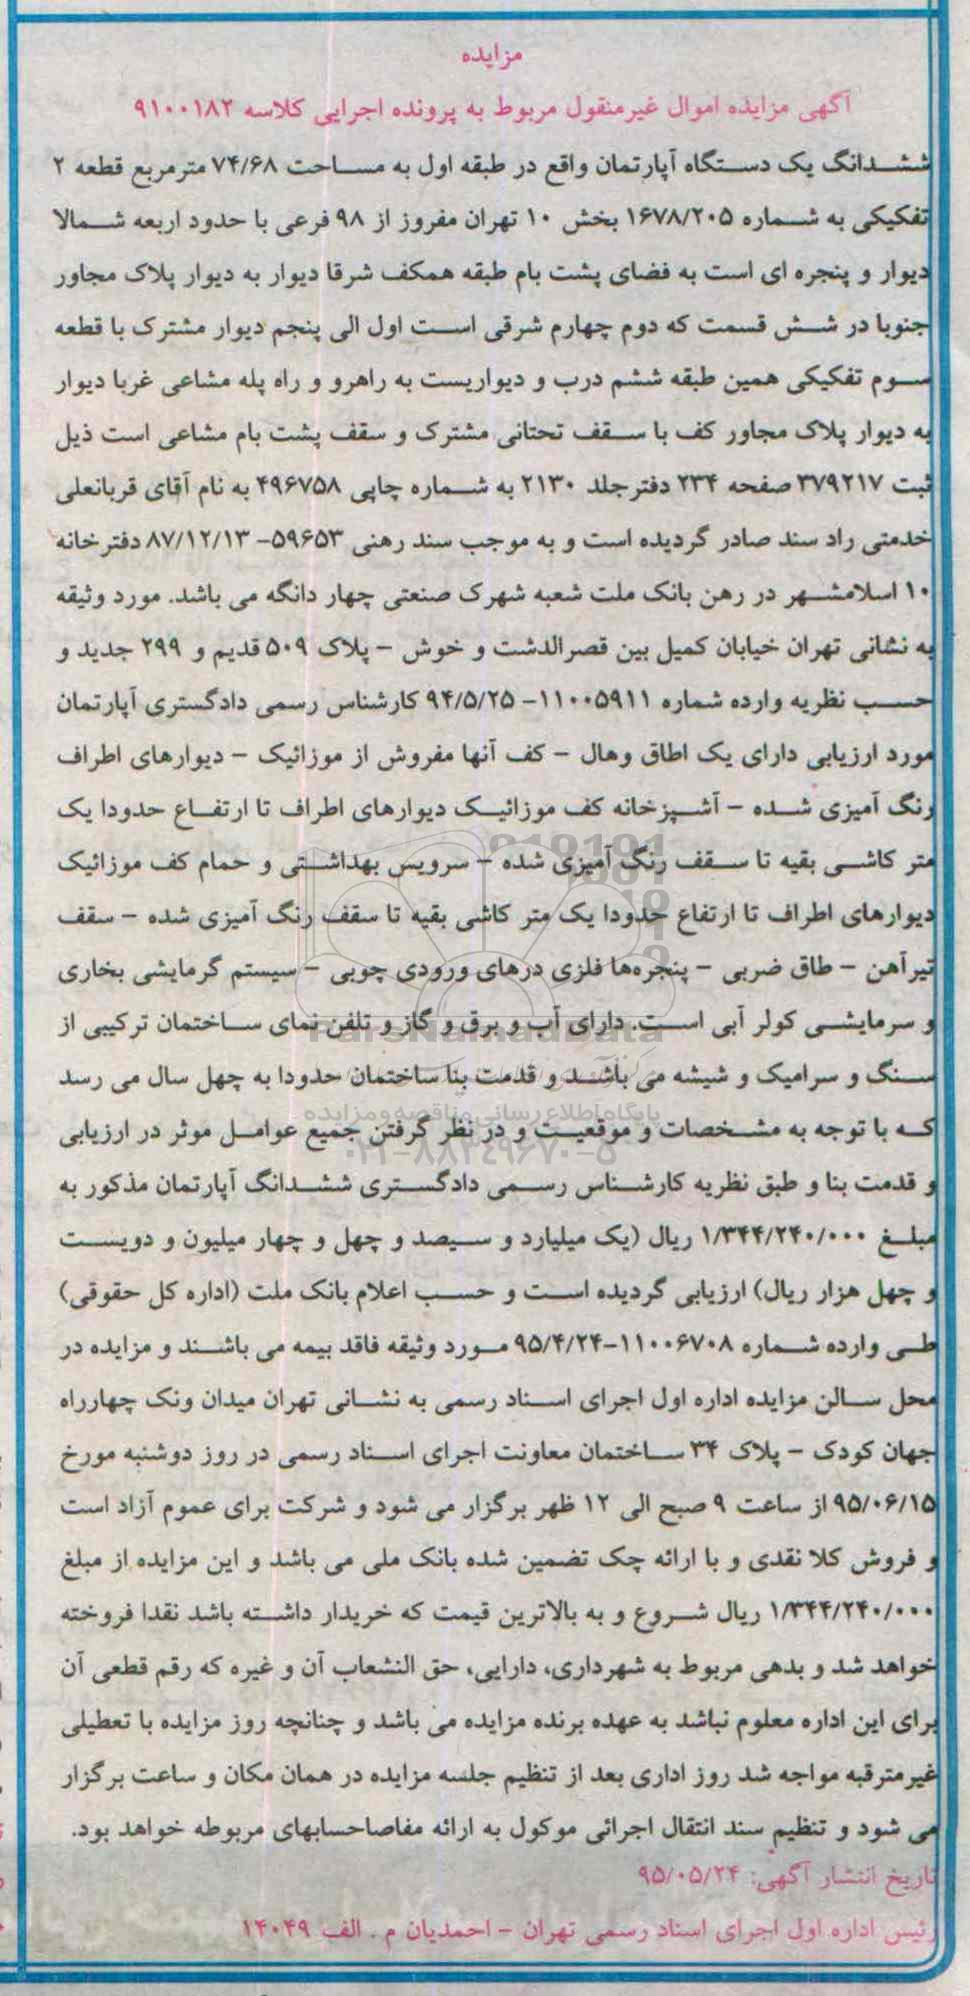 مزایده
آگهی مزایده اموال غیرمنقول مربوط به پرونده اجرایی کلاسه ۹۱۰۰۱۸۲
ششدانگ یک دستگاه آپارتمان واقع در طبقه اول به مساحت ۷۴/۶۸ مترمربع قطعه ۲
تفکیکی به شماره ۱۶۷۸/۲۰۵ بخش ۱۰ تهران مفروز از ۹۸ فرعی با حدود اربعه شمالا
دیوار و پنجره ای است به فضای پشت بام طبقه همکف شرقا دیوار به دیوار پلاک مجاور
جنوبا در شش قسمت که دوم چهارم شرقی است اول الی پنجم دیوار مشترک با قطعه
سوم تفکیکی همین طبقه ششم درب و دیواریست به راهرو و راه پله مشاعی غربا دیوار
به دیوار پلاک مجاور کف با سقف تحتانی مشترک و سقف پشت بام مشاعی است ذیل
ثبت ۳۷۹۲۱۷ صفحه ۲۳۴ دفترجلد ۲۱۳۰ به شماره چاپی ۴۹۶۷۵۸ به نام آقای قربانعلی
خدمتی راد سند صادر گردیده است و به موجب سند رهنی ۵۹۶۵۳- ۸۷/۱۲/۱۳ دفترخانه
۱۰ اسلامشهر در رهن بانک ملت شعبه شهرک صنعتی چهار دانگه می باشد. مورد وثیقه
به نشانی تهران خیابان کمیل بین قصرالدشت و خوش - پلاک ۵۰۹ قدیم و ۲۹۹ جدید و
حسب نظریه وارده شماره ۱۱۰۰۵۹۱۱- ۹۴/۵/۲۵ کارشناس رسمی دادگستری آپارتمان
مورد ارزیابی دارای یک اطاق وهال - کف آنها مفروش از موزائیک - دیوارهای اطراف
رنگ آمیزی شده - آشپزخانه کف موزائیک دیوارهای اطراف تا ارتفاع حدودا یک
متر کاشی بقیه تا سقف رنگ آمیزی شده - سرویس بهداشتی و حمام کف موزائیک
دیوارهای اطراف تا ارتفاع حدودا یک متر کاشی بقیه تا سقف رنگ آمیزی شده - سقف
تیرآهن - طاق ضربی - پنجره‌ها فلزی درهای ورودی چوبی - سیستم گرمایشی بخاری
و سرمایشی کولر آبی است. دارای آب و برق و گاز و تلفن نمای ساختمان ترکیبی از
ParsNamadData
سنگ و سرامیک و شیشه می باشد و قدمت بنا ساختمان حدودا به چهل سال می رسد
پایگاه اطلاع رسانی مناقصه و مزایده
که با توجه به مشخصات و موقعیت و در نظر گرفتن جمیع عوامل موثر در ارزیابی
۰۲۱-۸۸۳۴۹۶۷۰-۵
و قدمت بنا و طبق نظریه کارشناس رسمی دادگستری ششدانگ آپارتمان مذکور به
مبلغ ۱/۳۴۴/۲۴۰/۰۰۰ ریال (یک میلیارد و سیصد و چهل و چهار میلیون و دویست
و چهل هزار ریال) ارزیابی گردیده است و حسب اعلام بانک ملت (اداره کل حقوقی)
طی وارده شماره ۱۱۰۰۶۷۰۸-۹۵/۴/۲۴ مورد وثیقه فاقد بیمه می باشند و مزایده در
محل سالن مزایده اداره اول اجرای اسناد رسمی به نشانی تهران میدان ونک چهارراه
جهان کودک - پلاک ۳۴ ساختمان معاونت اجرای اسناد رسمی در روز دوشنبه مورخ
۹۵/۰۶/۱۵ از ساعت ۹ صبح الی ۱۲ ظهر برگزار می شود و شرکت برای عموم آزاد است
و فروش کلا نقدی و با ارائه چک تضمین شده بانک ملی می باشد و این مزایده از مبلغ
۱/۳۴۴/۲۴۰/۰۰۰ ریال شروع و به بالاترین قیمت که خریدار داشته باشد نقدا فروخته
خواهد شد و بدهی مربوط به شهرداری، دارایی، حق النشعاب آن و غیره که رقم قطعی آن
برای این اداره معلوم نباشد به عهده برنده مزایده می باشد و چنانچه روز مزایده با تعطیلی
غیرمترقبه مواجه شد روز اداری بعد از تنظیم جلسه مزایده در همان مکان و ساعت برگزار
می شود و تنظیم سند انتقال اجرائی موکول به ارائه مفاصاحسابهای مربوطه خواهد بود.
تاریخ انتشار آگهی: ۹۵/۰۵/۲۴
رئیس اداره اول اجرای اسناد رسمی تهران - احمدیان م . الف ۱۴۰۴۹